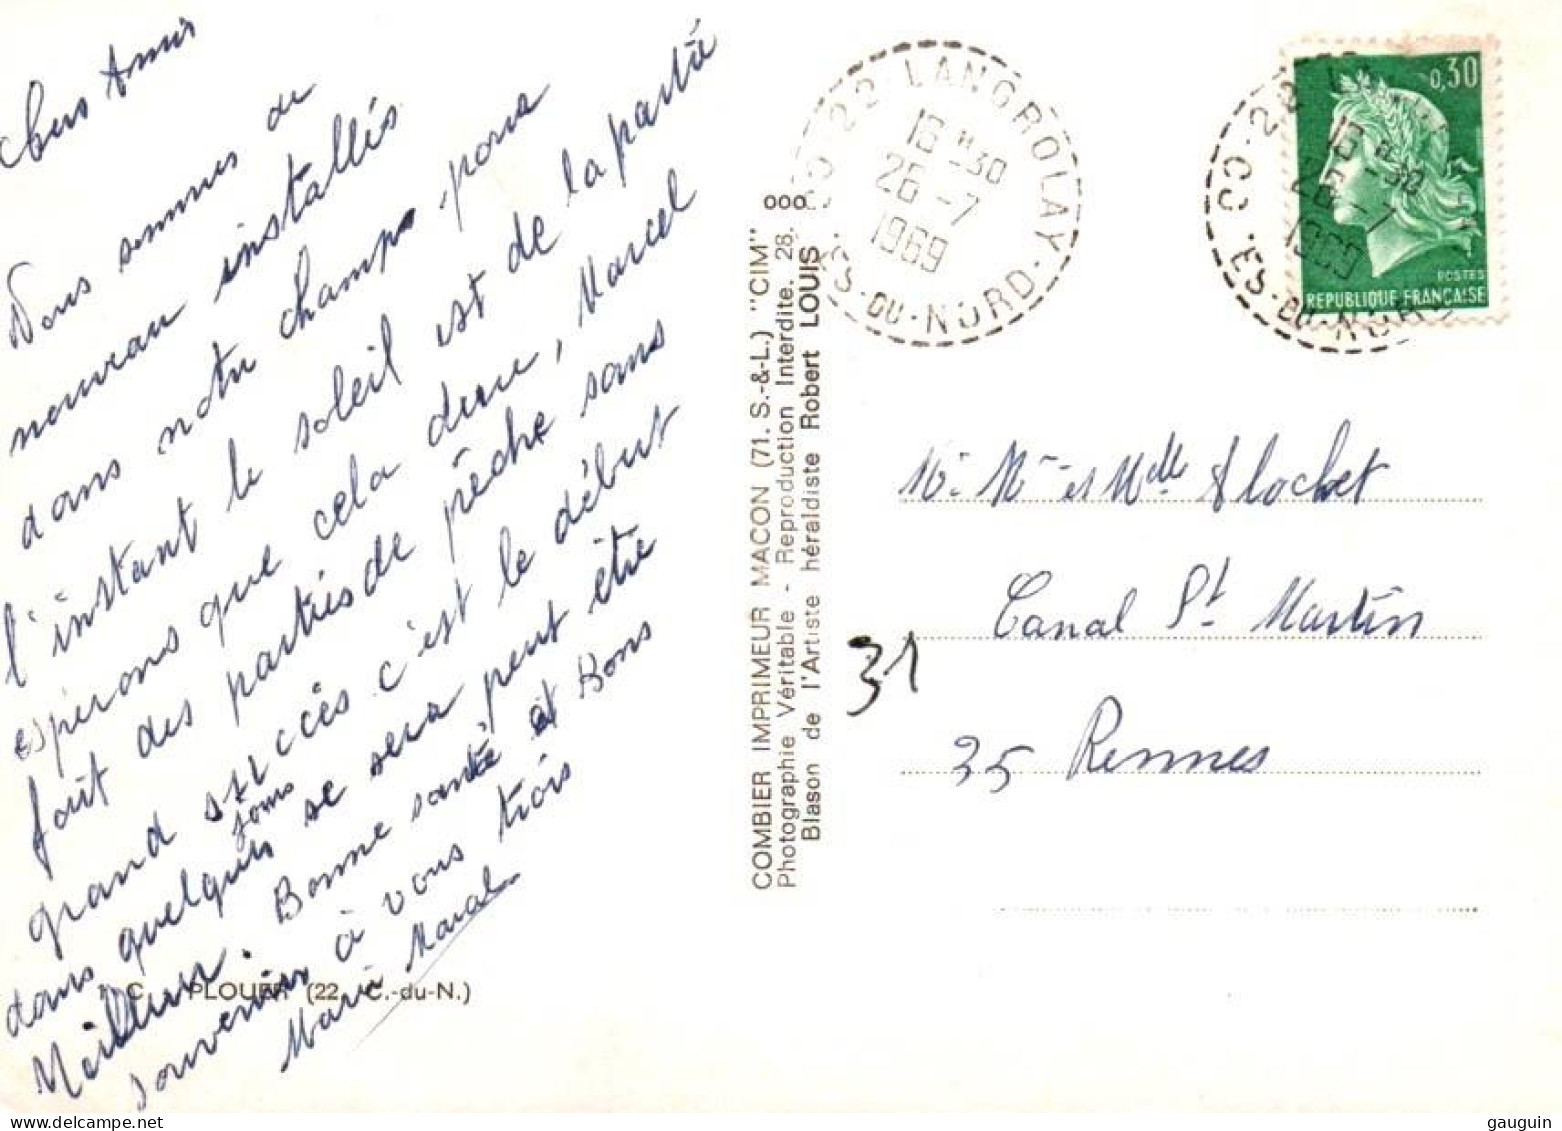 Chers Amis
Nous sommes de
nouveau installés
dans notre champs, pour
l'instant le soleil est de la partie
espérons que cela dure, Marcel
fait des parties de pêche sans
grand succès c'est le début
dans quelques jours se sera peut être
Meilleur. Bonne santé et Bons
souvenirs à vous trois
Marie Marcel
1 C. - PLOUER (22 - C.-du-N.)
COMBIER IMPRIMEUR MACON (71. S.-&-L.) "CIM"
Photographie Véritable - Reproduction Interdite. 28.
Blason de l'Artiste héraldiste Robert LOUIS
000
22 LANGROLAY
16 H 30
26 -7
1969
CO ES-DU-NORD
0,30
POSTES
REPUBLIQUE FRANÇAISE
22
16 H 30
26 -7
1969
CO ES-DU-NORD
Mr Me et Melle
Canal St Martin
31
35 Rennes
gauguin